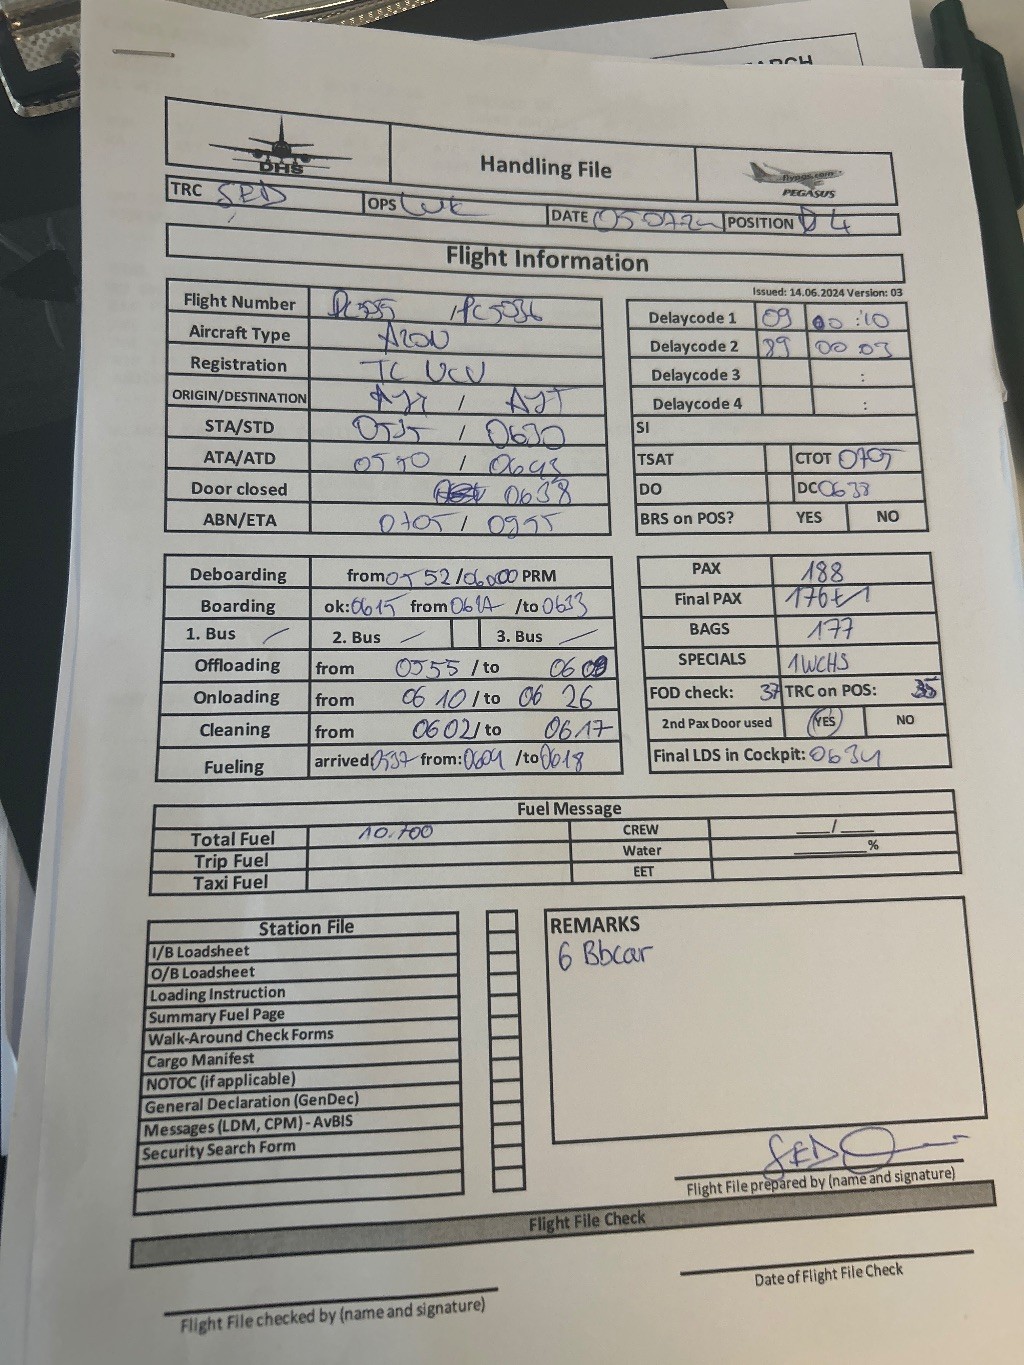 ARCH
DHS
Handling File
flypgs.com
PEGASUS
TRC SED OPS DATE POSITION D 4
Flight Information
Issued: 14.06.2024 Version: 03
Flight Number / PC5036
Aircraft Type A20N
Registration TC
ORIGIN/DESTINATION AYT / AYT
STA/STD 0535 / 0630
ATA/ATD / 0643
Door closed 0638
ABN/ETA 0705 / 0955
Delaycode 1 09 00 :10
Delaycode 2 89 00 03
Delaycode 3 :
Delaycode 4 :
SI
TSAT CTOT 0705
DO DC 0638
BRS on POS? YES NO
Deboarding from 0552 / PRM
Boarding ok: 0615 from /to 0633
1. Bus / 2. Bus / 3. Bus /
Offloading from 0555 / to
Onloading from 06 10 / to 06 26
Cleaning from 0602 / to 0617
Fueling arrived 0537 from: 0604 /to 0618
PAX 188
Final PAX 176+1
BAGS 177
SPECIALS 1WCHS
FOD check: 37 TRC on POS: 35
2nd Pax Door used YES NO
Final LDS in Cockpit: 0634
Fuel Message
Total Fuel 10.700 CREW ___/___
Trip Fuel Water ______%
Taxi Fuel EET
Station File
I/B Loadsheet
O/B Loadsheet
Loading Instruction
Summary Fuel Page
Walk-Around Check Forms
Cargo Manifest
NOTOC (if applicable)
General Declaration (GenDec)
Messages (LDM, CPM) - AvBIS
Security Search Form
REMARKS
6 Bbcar
SED
Flight File prepared by (name and signature)
Flight File Check
Flight File checked by (name and signature)
Date of Flight File Check